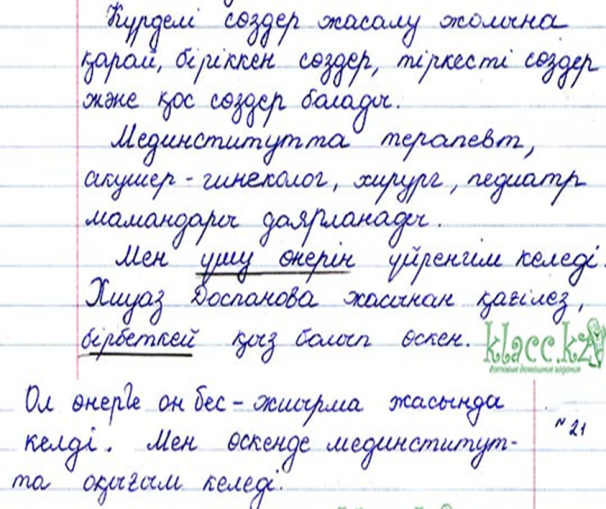 Күрделі сөздер жасалу жолына
қарай, біріккен сөздер, тіркесті сөздер
және қос сөздер болады.
Мединститутта терапевт,
акушер-гинеколог, хирург, педиатр
мамандары даярланады.
Мен ушу өнерін үйренгім келеді.
Хиуаз Доспанова жасынан қағілез,
бірбеткей қыз болып өскен.
klacc.kz
готовые домашние задания
Ол өнерге он бес-жиырма жасында
келді. Мен өскенде мединститут-
№21
та оқығым келеді.